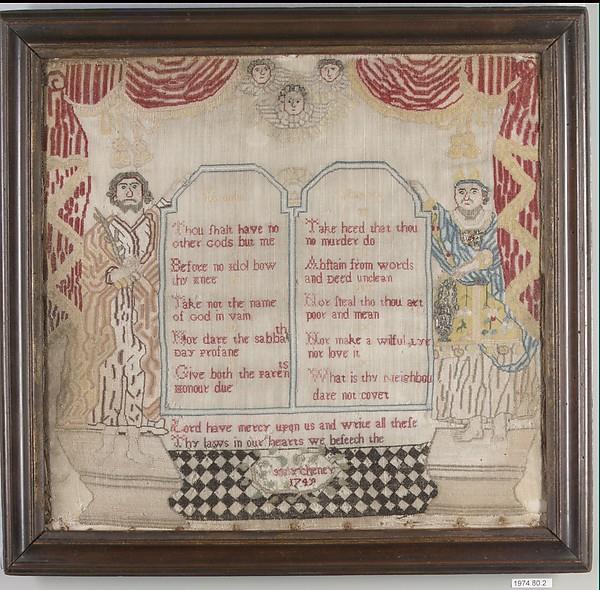 Thou ſhalt have no
other Gods but me
Before no idol bow
thy knee
Take not the name
of God in vain
Nor dare the sabbath
Day profane
Give both thy Parents
Honour due
Take heed that thou
no murder do
Abſtain from words
and Deed unclean
Nor ſteal tho thou art
poor and mean
Nor make a wilful Lye
nor love it
What is thy Neighbou
dare not covet
Lord have mercy upon us and write all theſe
Thy laws in our hearts we beſeech the
Cheney
1974.80.2